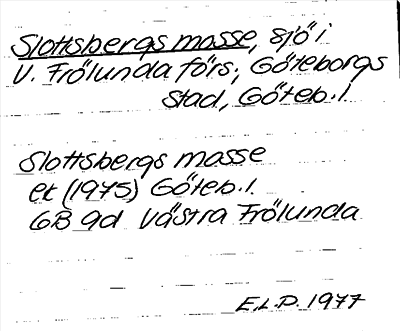 Slottsbergs mosse, sjö i
V. Frölunda förs; Göteborgs
stad, Göteb. l.
Slottsbergs mosse
ek (1975) Göteb. l.
6B 9d Västra Frölunda
E.L.P. 1977